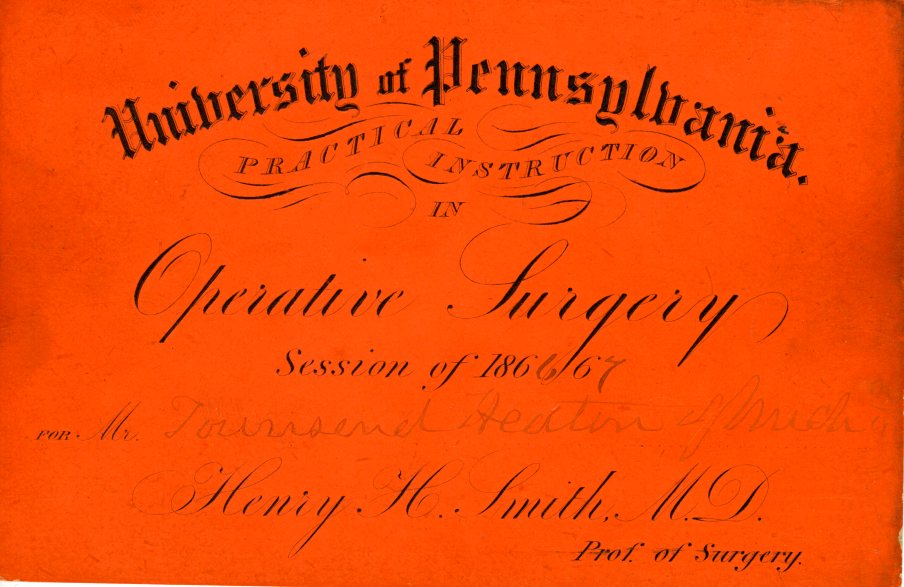 University of Pennsylvania.
PRACTICAL INSTRUCTION
IN
Operative Surgery
Session of 1866/67
FOR Mr. Townsend Heaton of Mich
Henry H. Smith, M.D.
Prof. of Surgery.